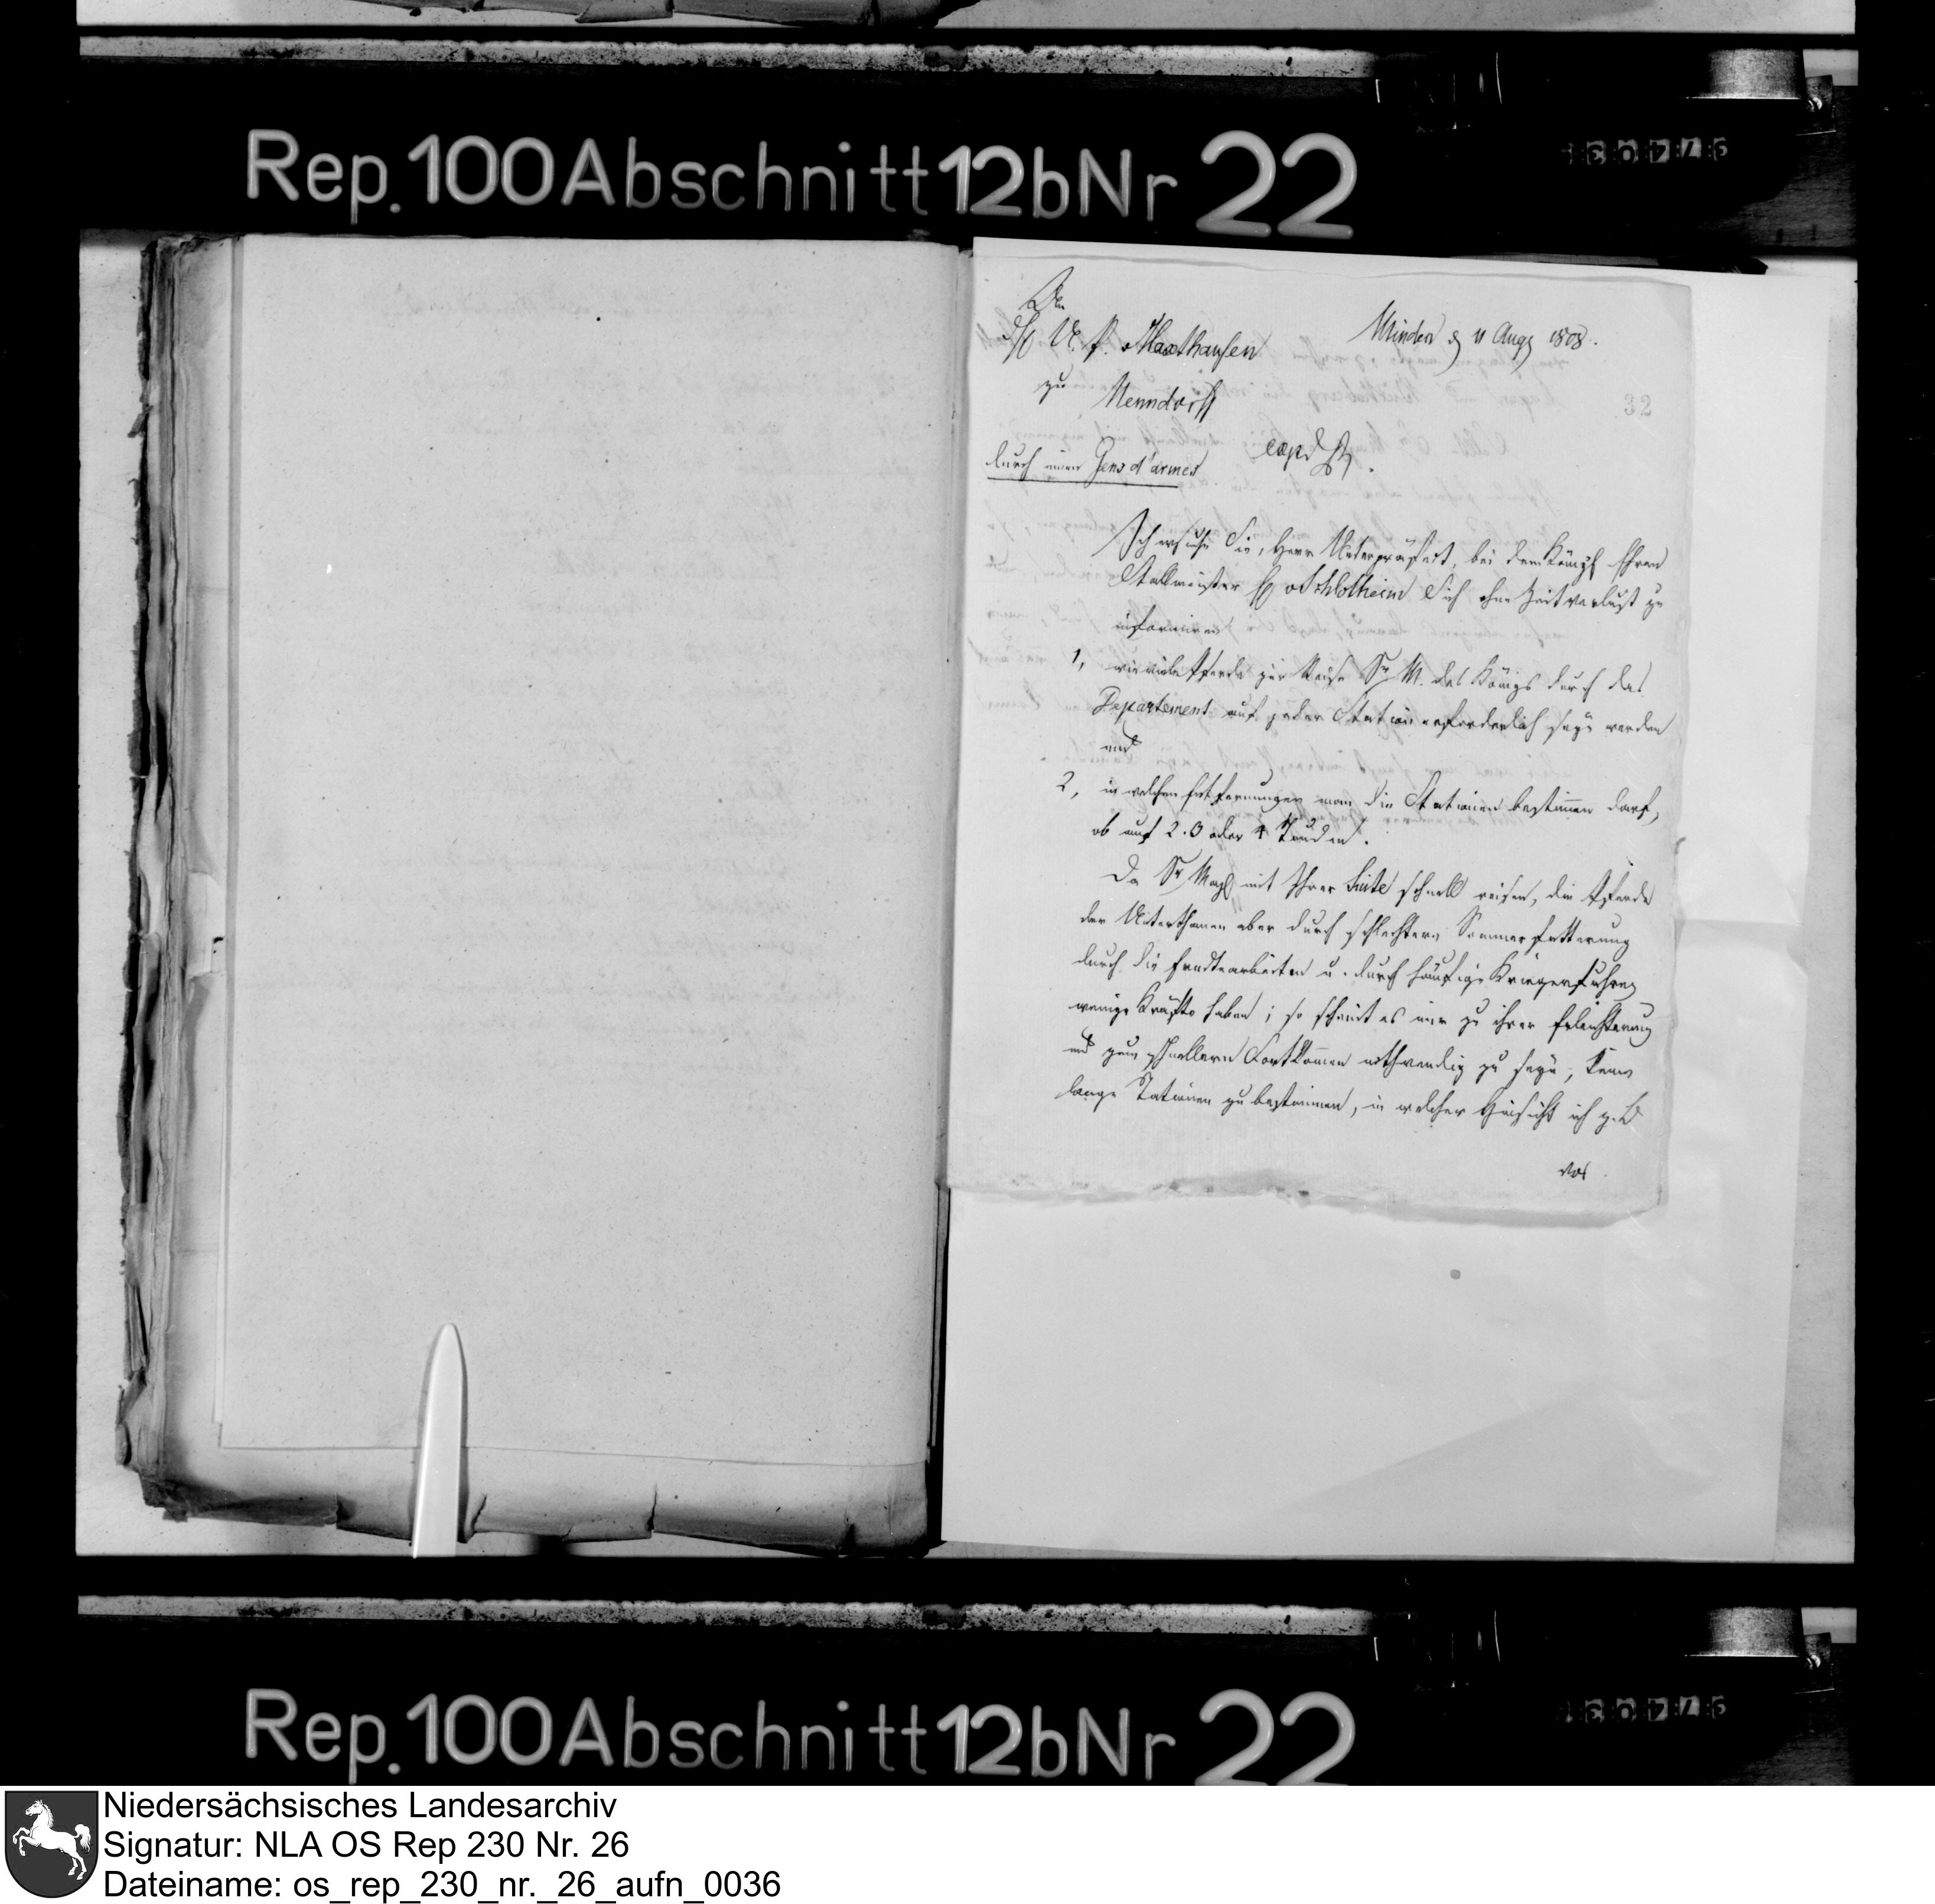 Rep. 100 Abschnitt 12b Nr 22
An
U. P. v Haxthausen
zu
Nenndorff
Minden d 11 Aug 1808.
32
durch einen Gens d'armes
expd
Ich ersuche Sie, Herr Unterpräfect, bei dem Königl Ehren
Stallmeister H v Schlotheim Sich ohne Zeitverlust zu
informiren
1, wie viele Pferde zur Reise Sr M. des Königs durch das
Departement auf jeder Station erforderlich seyn werden
und
2, in welchen Entfernungen man die Stationen bestimmen darf,
ob auf 2. 3 oder 4 Stunden.
Da Sr Maj mit Ihrer Suite schnell reisen, die Pferde
der Unterthanen aber durch schlechtere Sommerfutterung
durch die Erndtearbeiten u. durch häufige Kriegerfuhren
wenige Kräfte haben; so scheint es mir zu ihrer Erleichterung
und zum schnellern Fortkommen nothwendig zu seyn, keine
lange Stationen zu bestimmen, in welcher Hinsicht ich z. B
Rep. 100 Abschnitt 12b Nr 22
Niedersächsisches Landesarchiv
Signatur: NLA OS Rep 230 Nr. 26
Dateiname: os_rep_230_nr._26_aufn_0036